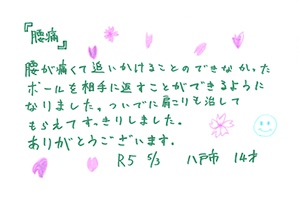 『腰痛』
腰が痛くて追いかけることのできなかった
ボールを相手に返すことができるように
なりました。ついでに肩こりも治して
もらえてすっきりしました。
ありがとうございます。
R5 5/3 八戸市 14才